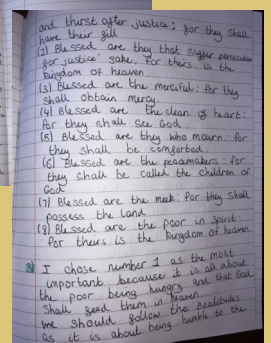 and thirst after justice; for they shall
have their fill
(2) Blessed are they that suffer persecution
for justice' sake, for theirs is the
kingdom of heaven.
(3) Blessed are the merciful: for they
shall obtain mercy.
(4) Blessed are the clean of heart:
for they shall see God
(5) Blessed are they who mourn: for
they shall be comforted.
(6) Blessed are the peacemakers: for
they shall be called the children of
God
(7) Blessed are the meek: for they shall
possess the land
(8) Blessed are the poor in spirit:
for theirs is the kingdom of heaven
I chose number 1 as the most
important because it is all about
the poor being hungry and that God
shall feed them in heaven.
We should follow the Beatitudes
as it is about being humble to the